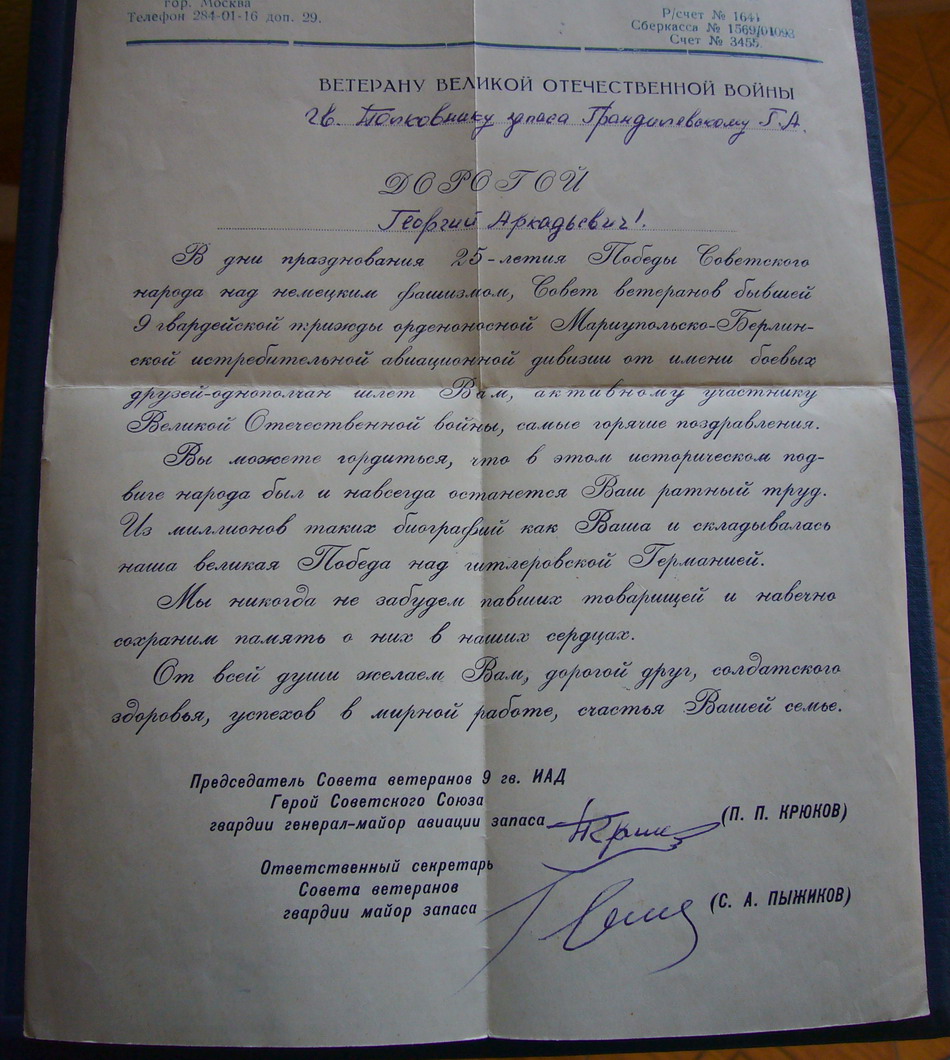 гор. Москва
Телефон 284-01-16 доп. 29.
Р/счет № 1641
Сберкасса № 1569/01093
Счет № 3455.
ВЕТЕРАНУ ВЕЛИКОЙ ОТЕЧЕСТВЕННОЙ ВОЙНЫ
гв. Полковнику запаса Грандилевскому Г.А.
ДОРОГОЙ
Георгий Аркадьевич!
В дни празднования 25-летия Победы Советского
народа над немецким фашизмом, Совет ветеранов бывшей
9 гвардейской трижды орденоносной Мариупольско-Берлин-
ской истребительной авиационной дивизии от имени боевых
друзей-однополчан шлет Вам, активному участнику
Великой Отечественной войны, самые горячие поздравления.
Вы можете гордиться, что в этом историческом под-
виге народа был и навсегда останется Ваш ратный труд.
Из миллионов таких биографий как Ваша и складывалась
наша великая Победа над гитлеровской Германией.
Мы никогда не забудем павших товарищей и навечно
сохраним память о них в наших сердцах.
От всей души желаем Вам, дорогой друг, солдатского
здоровья, успехов в мирной работе, счастья Вашей семье.
Председатель Совета ветеранов 9 гв. ИАД
Герой Советского Союза
гвардии генерал-майор авиации запаса (П. П. КРЮКОВ)
Ответственный секретарь
Совета ветеранов
гвардии майор запаса (С. А. ПЫЖИКОВ)